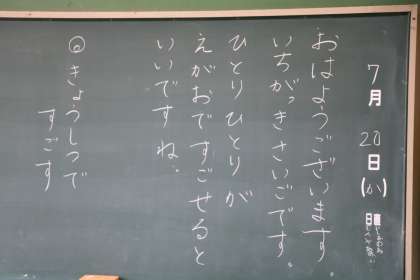 7月20日(か)
日直
おはようございます。
いちがっきさいごです。
ひとりひとりが
えがおですごせると
いいですね。
◎きょうしつで
すごす